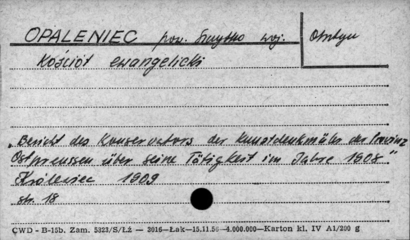 OPALENIEC pow. Szczytno woj. Olsztyn
Kościół ewangelicki
"Bericht des Konservators der Kunstdenkmäler der Provinz
Ostpreussen über seine Tätigkeit im Jahre 1908."
Królewiec 1909
str. 18
CWD - B-15b. Zam. 5323/S/Łż — 2016—Łak—15.11.56—4.000.000—Karton kl. IV A1/200 g